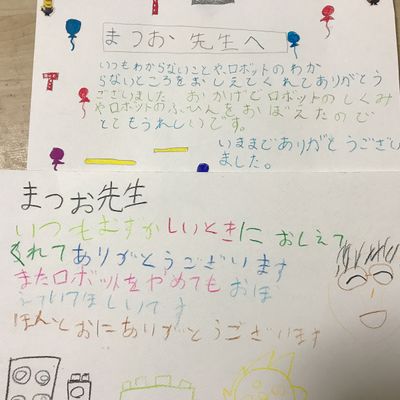 まつお 先生へ
いつもわからないことや、ロボットのわか
らないところをおしえてくれてありがとう
ございました おかげでロボットのしくみ
やロボットのぶひんをおぼえたので
とてもうれしいです。
いままでありがとうござい
ました。
まつお先生
いつもむずかしいときに おしえて
くれてありがとうございます
またロボットをやめても おぼ
えていてほしいです
ほんとおにありがとうございます